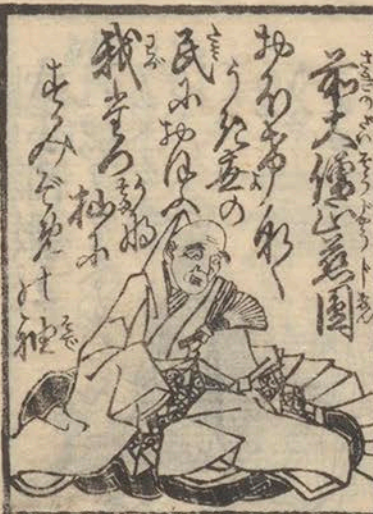 前大僧正慈圓
おほけなく
うき世の
民におほふ
かな
我たつ
杣に
すみぞめの袖